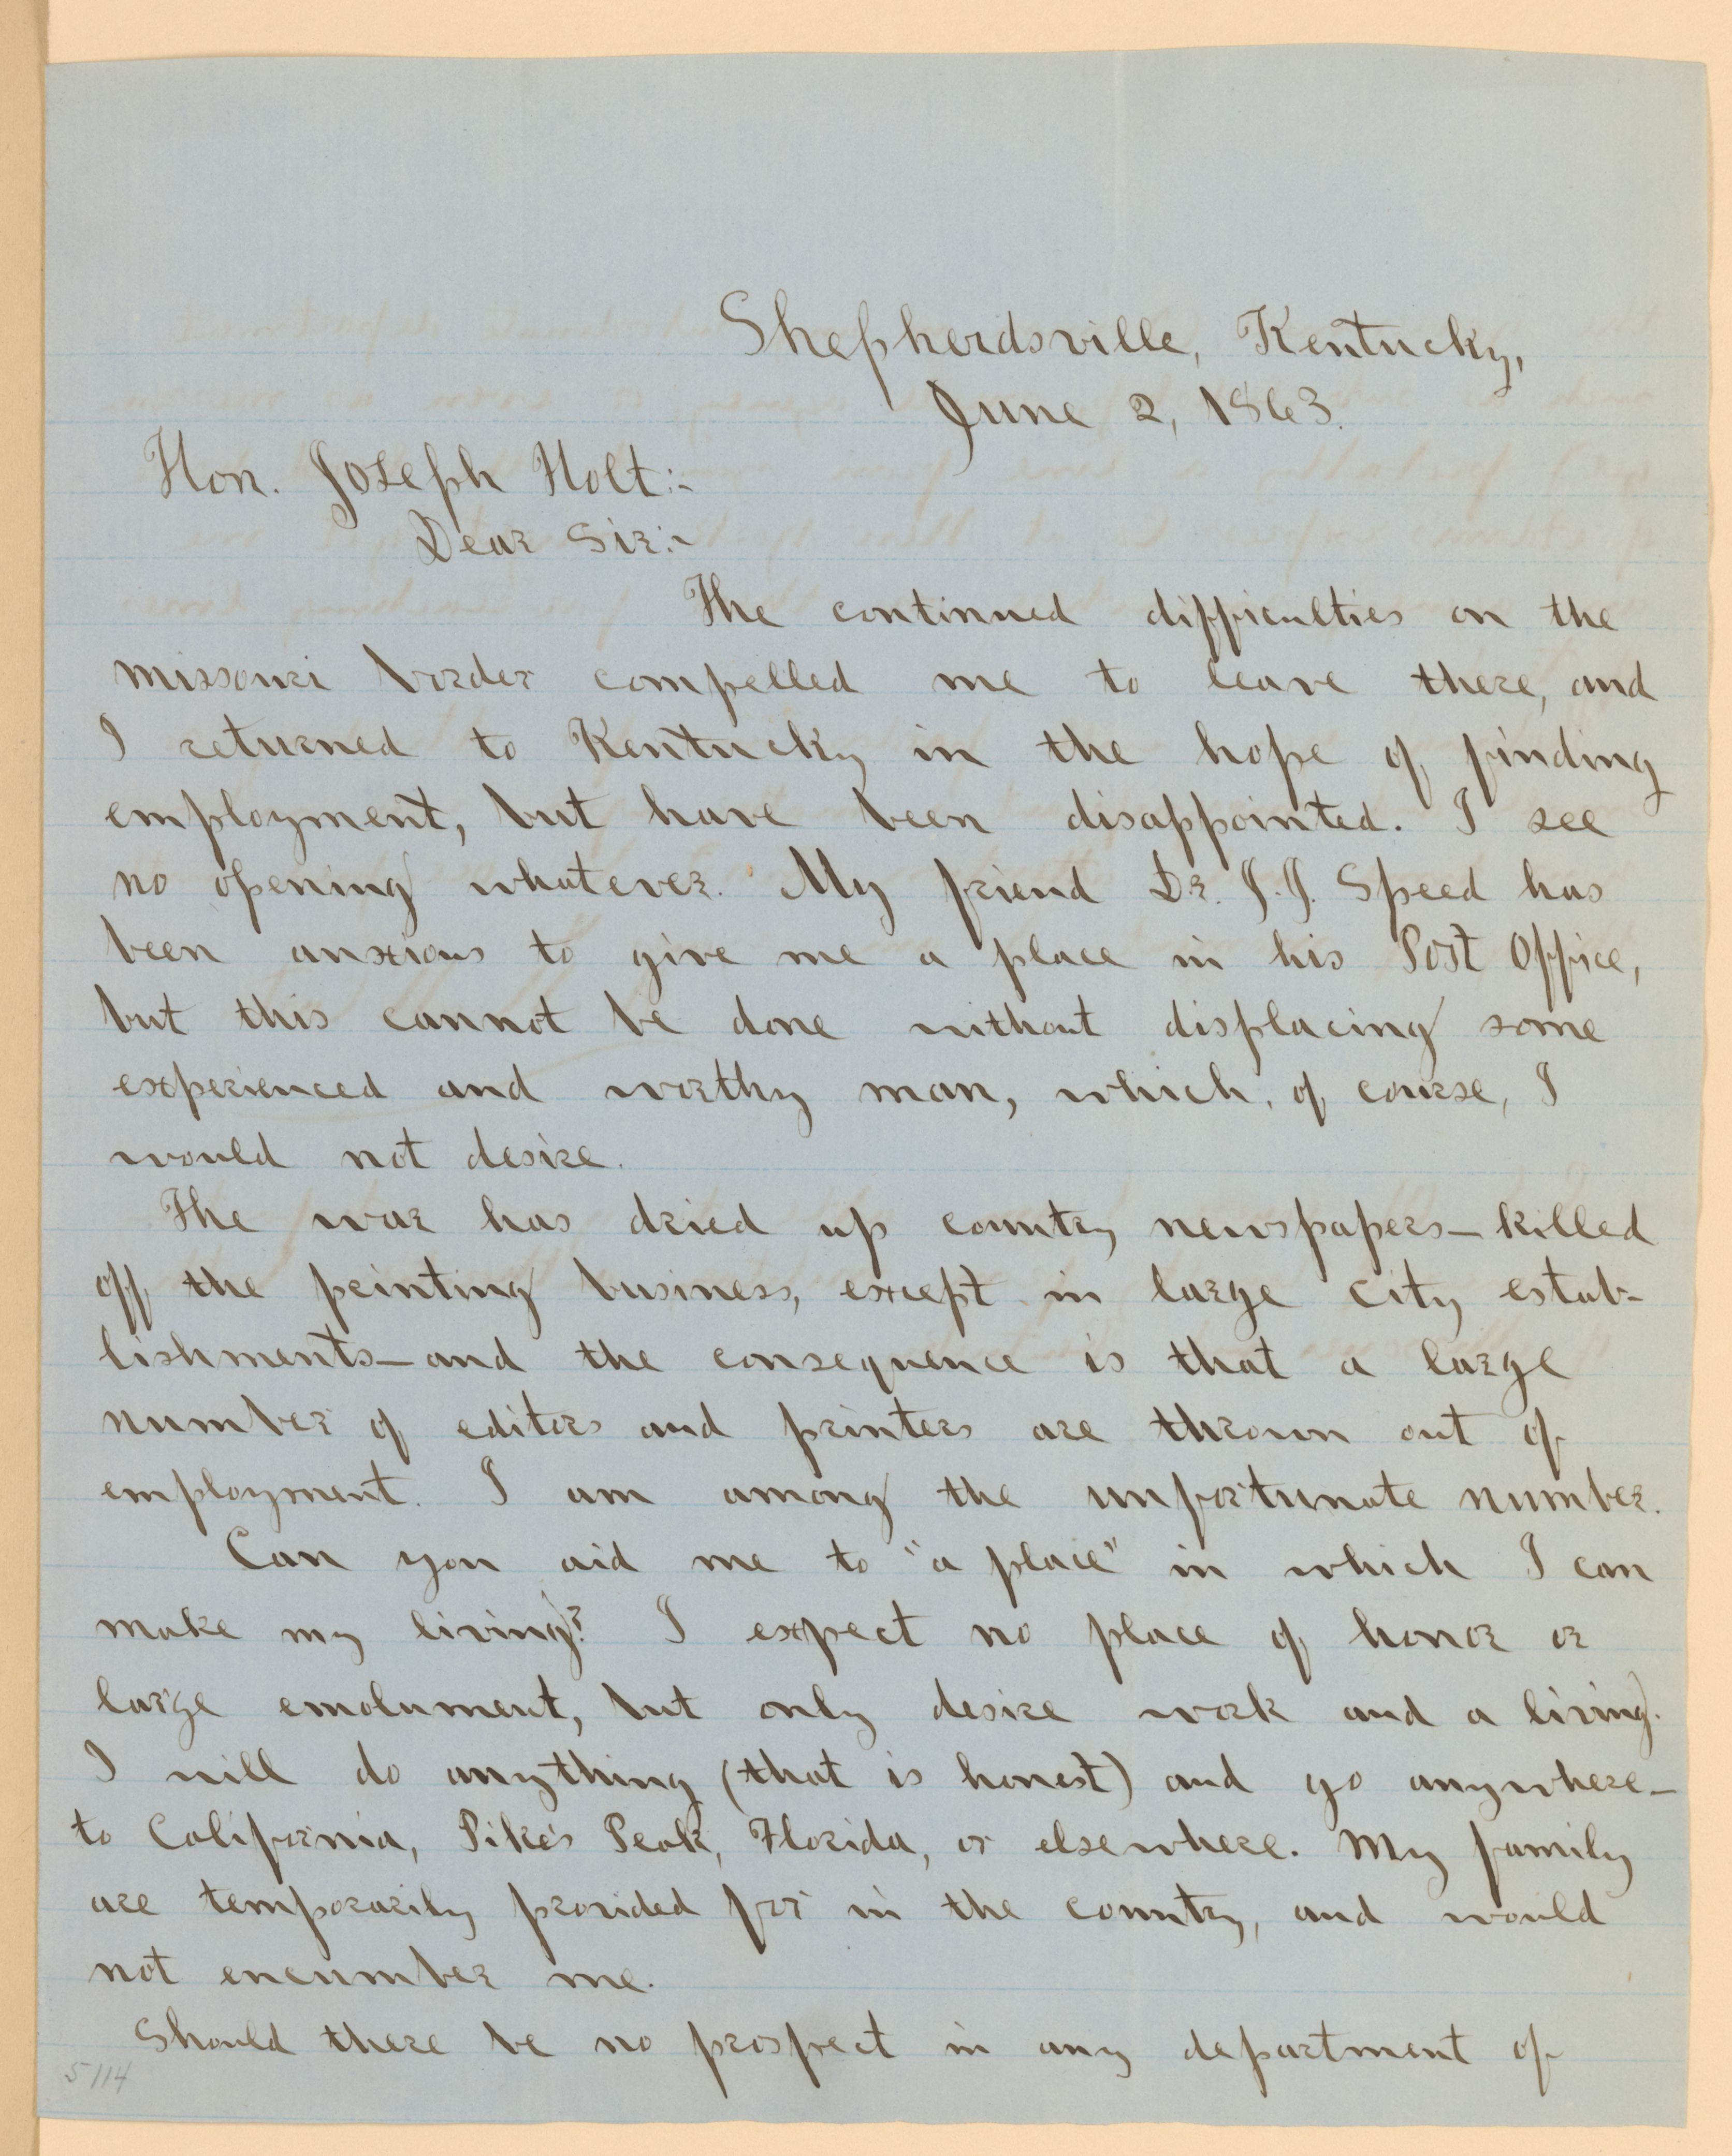 Shepherdsville, Kentucky,
June 2, 1863.
Hon. Joseph Holt:-
Dear Sir:-
The continued difficulties on the
Missouri border compelled me to leave there, and
I returned to Kentucky in the hope of finding
employment, but have been disappointed. I see
no opening whatever. My friend Dr. J. J. Speed has
been anxious to give me a place in his Post Office,
but this cannot be done without displacing some
experienced and worthy man, which, of course, I
would not desire.
The war has dried up country newspapers—killed
off the printing business, except in large city estab-
lishments—and the consequence is that a large
number of editors and printers are thrown out of
employment. I am among the unfortunate number.
Can you aid me to "a place" in which I can
make my living? I expect no place of honor or
large emolument, but only desire work and a living.
I will do anything (that is honest) and go anywhere—
to California, Pike's Peak, Florida, or elsewhere. My family
are temporarily provided for in the country, and would
not encumber me.
Should there be no prospect in any department of
5114